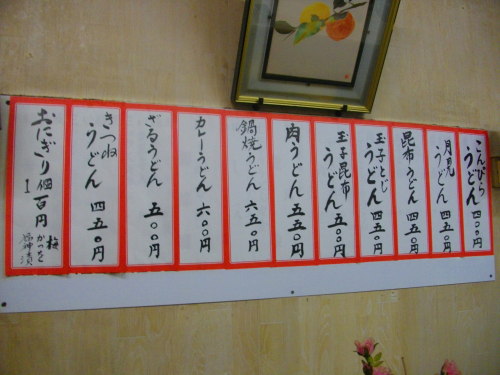 こんぴらうどん 四〇〇円
月見うどん 四五〇円
昆布うどん 四五〇円
玉子とじうどん 四五〇円
玉子昆布うどん 五五〇円
肉うどん 五五〇円
鍋焼うどん 六五〇円
カレーうどん 六〇〇円
ざるうどん 五〇〇円
きつねうどん 四五〇円
おにぎり 1個 百円 梅 かつを 福神漬